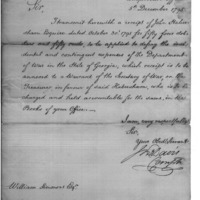 Sir,
5th December 1795
I transmit herewith a receipt of John Habersham Esquire dated October 30. 1795 for fifty four dollars and fifty cents, to be applied to defray the
and contingent expences of the Department
of War in the State of Georgia, which receipt is to
be the amount of a Warrant of the Secretary of War, on the
Treasurer in favour of said Habersham, who is to be
charged and held accountable for the same, in the
Books of your Office.
I am very respectfully
Sir,
Your Obed. Servant
Jno Davis
William Simmons Esq.